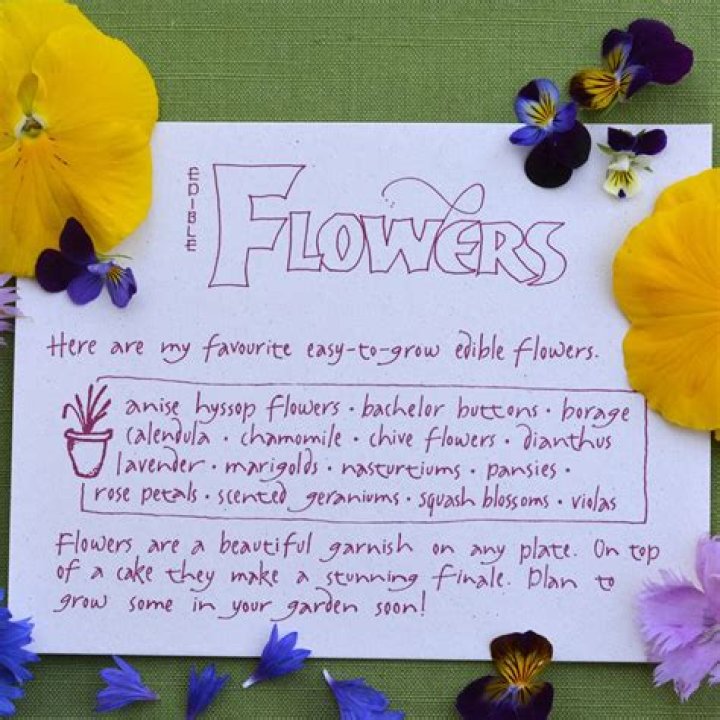 EDIBLE
FLOWERS
Here are my favourite easy-to-grow edible flowers.
anise hyssop flowers · bachelor buttons · borage
calendula · chamomile · chive flowers · dianthus
lavender · marigolds · nasturtiums · pansies ·
rose petals · scented geraniums · squash blossoms · violas
Flowers are a beautiful garnish on any plate. On top
of a cake they make a stunning finale. Plan to
grow some in your garden soon!